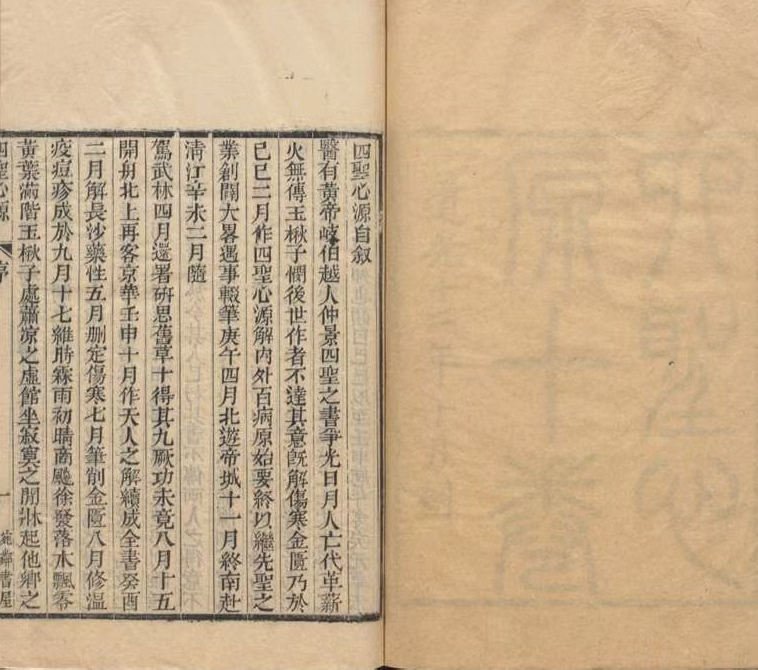 四聖心源自叙
醫有黃帝岐伯越人仲景四聖之書爭光日月人亡代革薪
火無傳玉楸子憫後世作者不達其意既解傷寒金匱乃於
己巳二月作四聖心源解內外百病原始要終以繼先聖之
業創開大畧遇事輟筆庚午四月北遊帝城十一月終南赴
淸江辛未二月隨
駕武林四月還署硏思舊草十得其九厥功未竟八月十五
開舟北上再客京華壬申十月作天人之解續成全書癸酉
二月解長沙藥性五月刪定傷寒七月筆削金匱八月修溫
疫痘疹成於九月十七維時霖雨初晴商飈徐發落木飄零
黃葉滿階玉楸子處蕭凉之虛館坐寂寞之閒牀起他鄉之
四聖心源
序
一
燮龢書屋